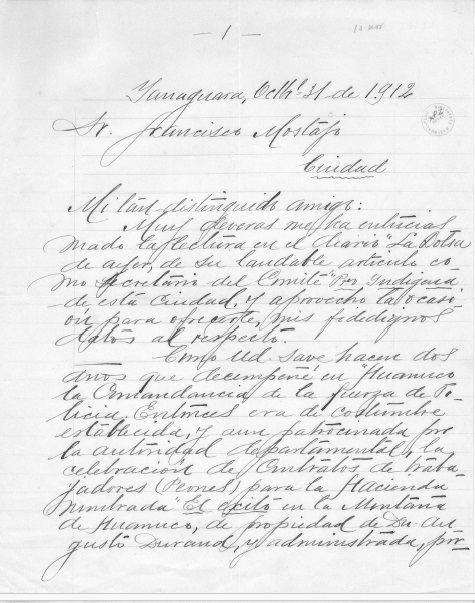 — 1 —
Yanaguara, Octb. 31 de 1,912
Sr. Francisco Mostajo
Ciudad
Mi tan distinguido amigo:
Muy deveras me ha entucias
mado la lectura en el diario La Bolsa
de ayer, de su laudable articulo co
mo Secretario del Comité "Pro Indigena"
de esta Ciudad, y aprovecho la ocasi
ón para ofrecerle, mis fidedignos
datos al respecto.
Como Ud. save hacen dos
años que decempeñé en "Huanuco
la Comandancia de la fuerza de Po-
licia. Entonces era de costumbre
establecida, y aun patrocinada por
la autoridad departamental, la
celebración de Contratos de traba-
jadores (Peones) para la Hacienda
nombrada "El exito" en la Montaña
de Huanuco, de propiedad de Dn. Au-
gusto Durand, y administrada, por-